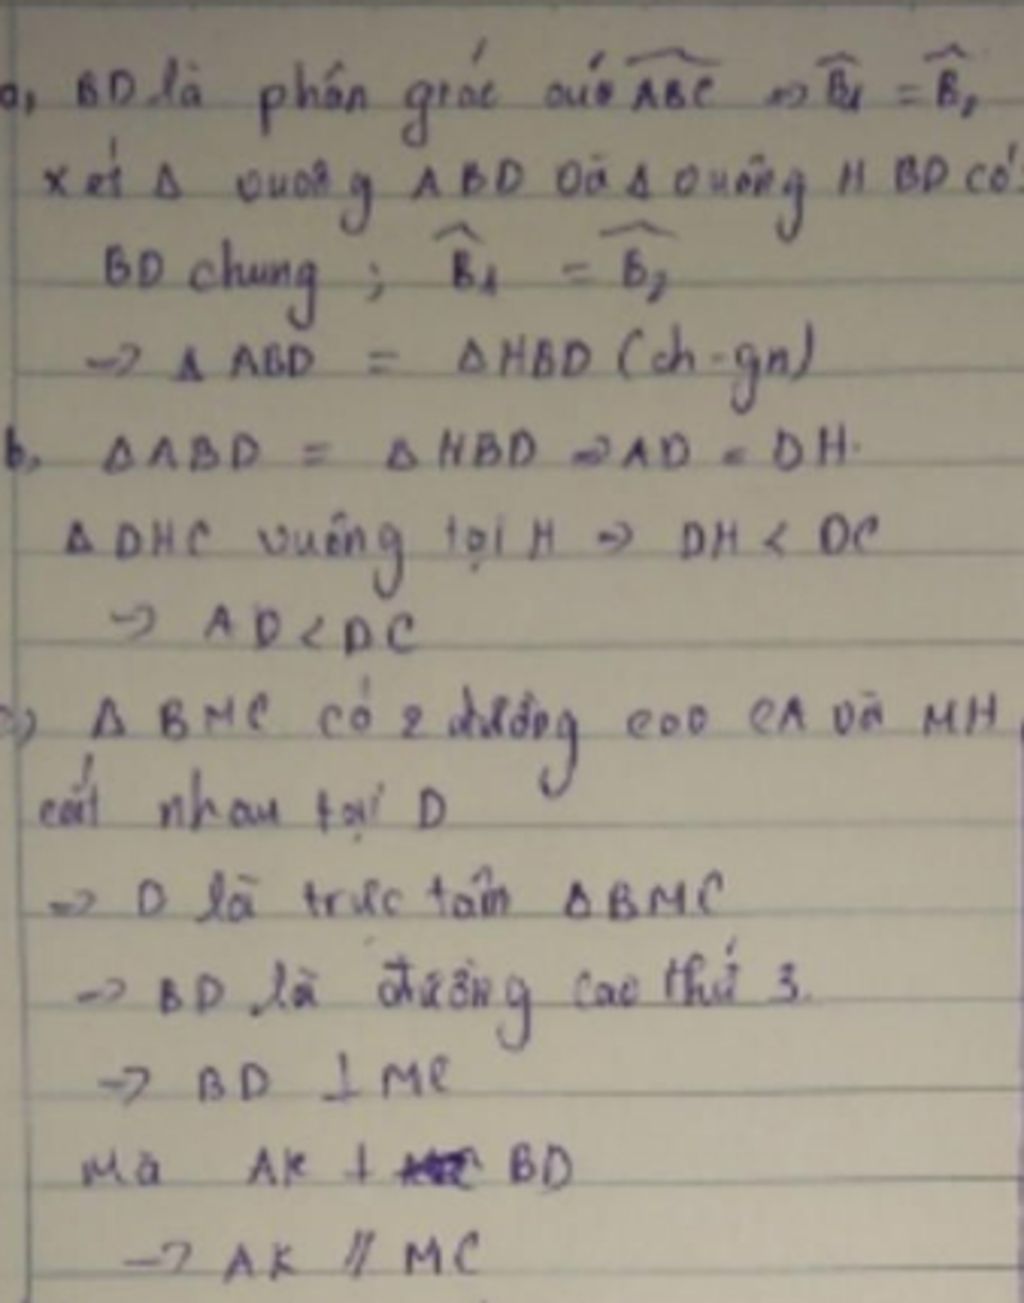 a, BD là phân giác của ABC => B1 = B2
xét Δ vuông ABD và Δ vuông HBD có:
BD chung ; B1 = B2
-> Δ ABD = Δ HBD (ch-gn)
b, Δ ABD = Δ HBD => AD = DH.
Δ DHC vuông tại H => DH < DC
-> AD < DC
c) Δ BMC có 2 đường cao CA và MH
cắt nhau tại D
=> D là trực tâm Δ BMC
-> BD là đường cao thứ 3.
-> BD ⊥ MC
Mà AK ⊥ BD
-> AK // MC